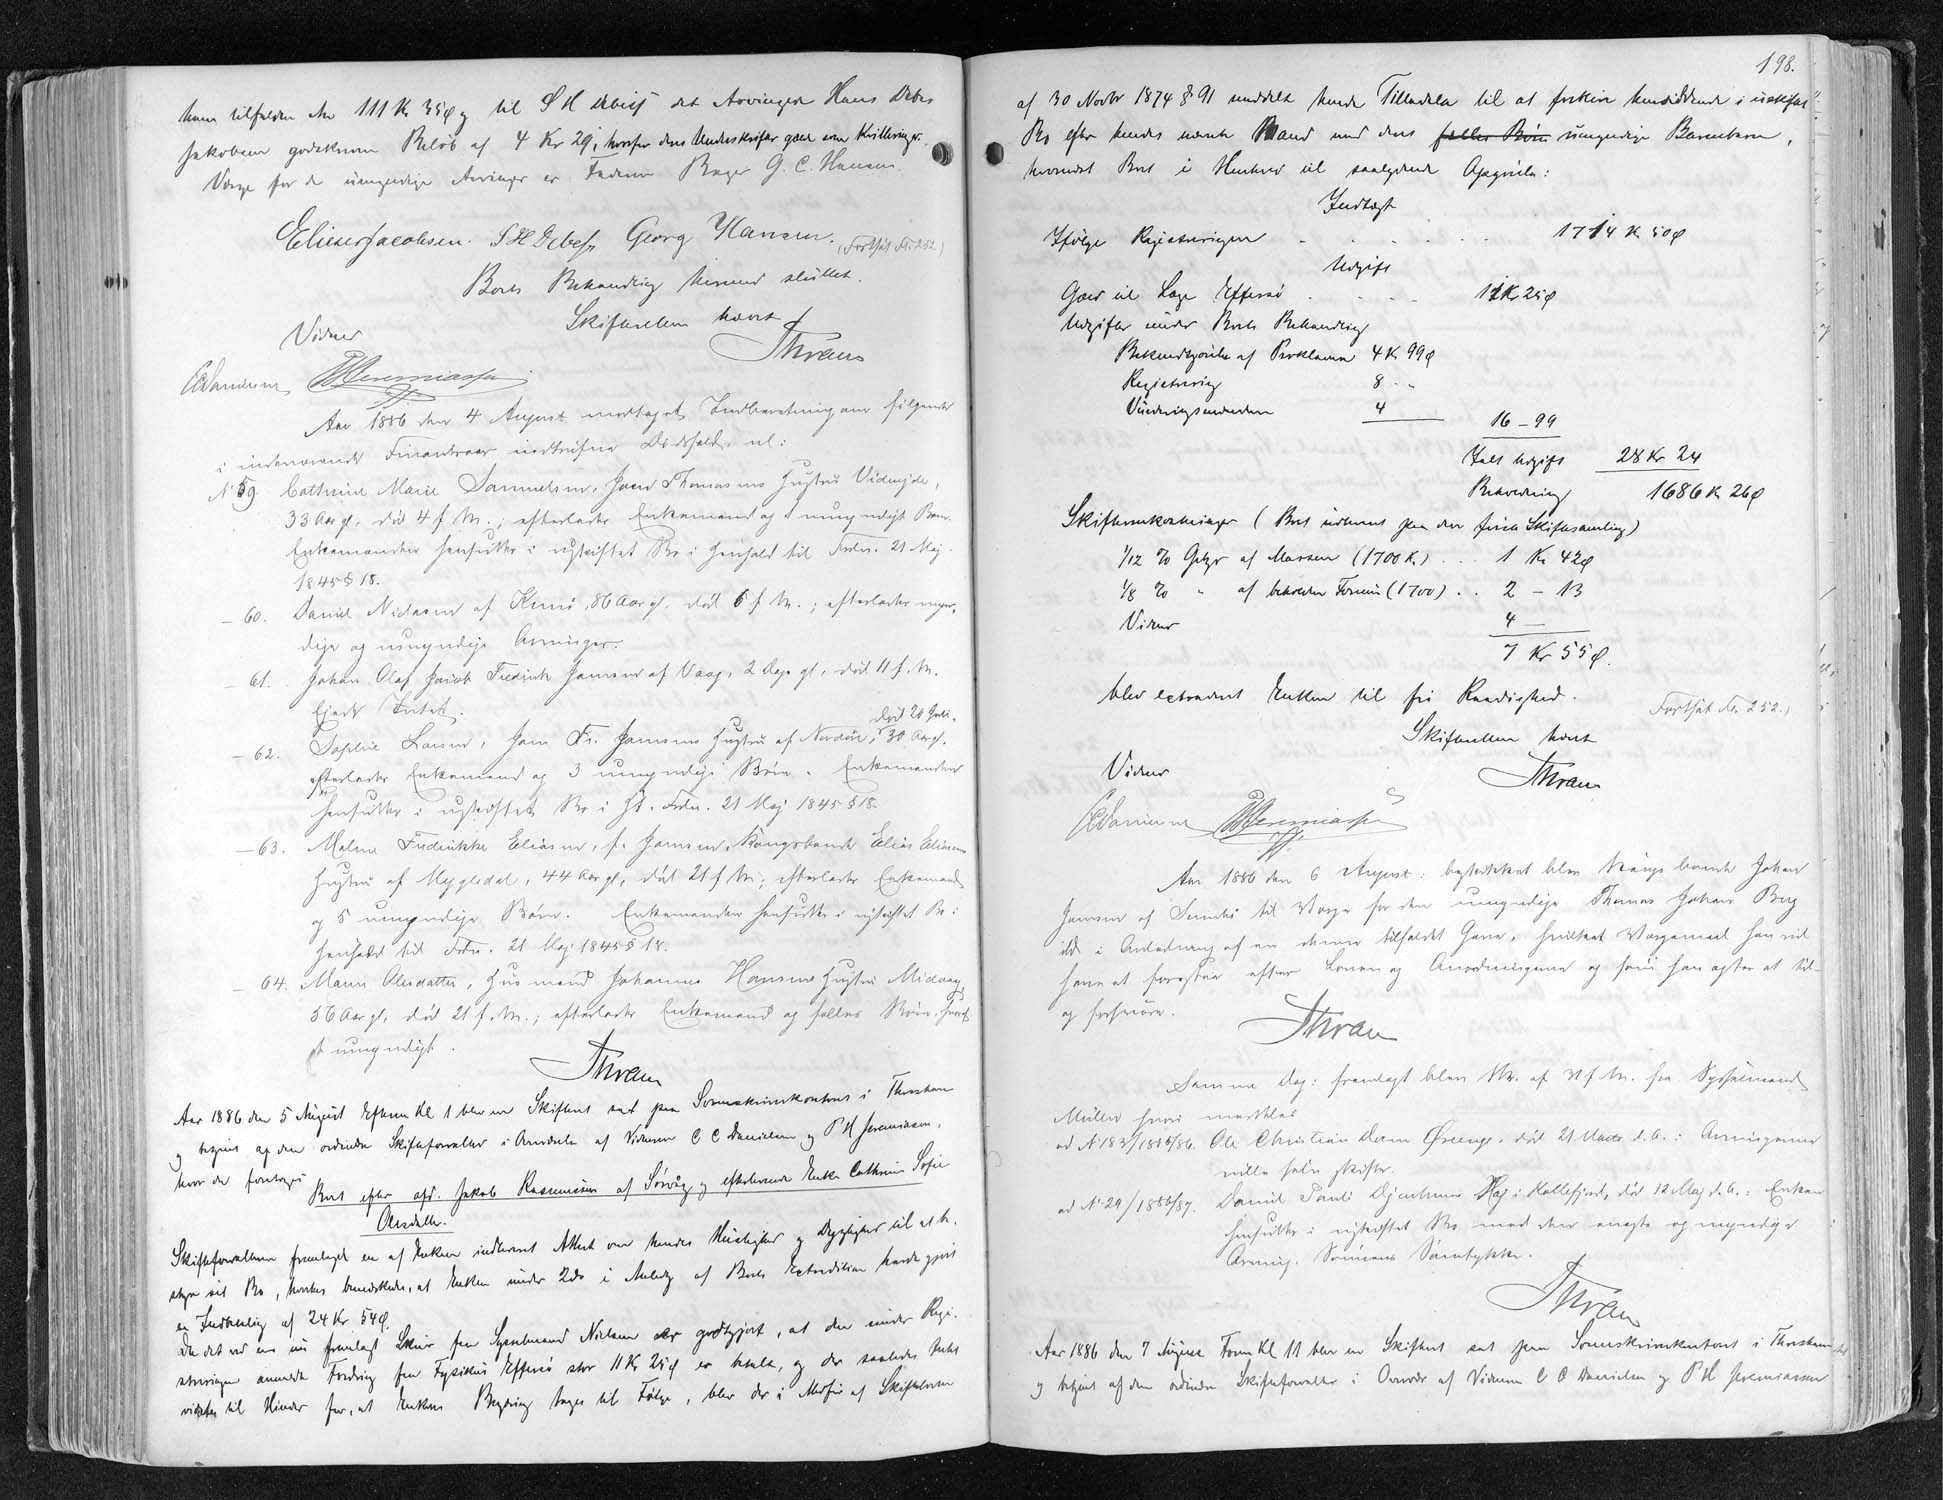 ham tilfalden Arv 111 Kr 35 Ø og til S H Debess det Arvingen Hans Debes
Jakobsen godskrevne Beløb af 4 Kr 29, hvorfor deres Underskrifter gælder som Kvitteringer.
Værge for de umyndige Arvinger er Faderen Bager G. C. Hansen.
Elieser Jacobsen. S H Debess Georg Hansen. (Fortsat Fol. 252)
Boets Behandling hermed sluttet.
Skifteretten hævet
Thrane
Vidner
CCDanielsen PHJeremiassen
Aar 1886 den 4 August modtaget Indberetning om følgende
i indeværende Finantsaar indtrufne Dødsfald, nl:
No 59. Cathrine Marie Samuelsen, Joen Thomasens Hustru Viderejde,
33 Aar gl. død 4 f. M.; efterlader Enkemand og 1 umyndigt Barn.
Enkemanden hensidder i uskiftet Bo i Henhold til Frdn. 21 Maj
1845 § 18.
- 60. Daniel Niclasen af Kunø, 86 Aar gl. død 6 f. M.; efterlader myn-
dige og umyndige Arvinger.
- 61. Johan Olaf Jacob Fredrik Jensen af Vaag, 2 Dage gl, død 11 f. M.
Ejede Intet.
- 62. Sophie Larsen, Joen Fr. Jensens Hustru af Nordøre, død 20 Juli, 30 Aar gl.
efterlader Enkemand og 3 umyndige Børn. Enkemanden
hensidder i uskiftet Bo i Ht. Frdn. 21 Maj 1845 § 18.
- 63. Malene Fredrikke Eliasen, f. Jensen, Kongsbonde Elias Eliasens
Hustru af Mygledal, 44 Aar gl, død 21 f. M; efterlader Enkemand
og 5 umyndige Børn. Enkemanden hensidder i uskiftet Bo i
Henhold til Frdn. 21 Maj 1845 § 18.
- 64. Maren Olesdatter, Husmand Johannes Hansens Hustru Midvaag,
56 Aar gl. død 21 f. M.; efterlader Enkemand og fælles Børn, hvoraf
1 umyndigt.
Thrane
Aar 1886 den 5 August Efterm Kl 1 blev en Skifteret sat paa Sorenskriverkontoret i Thorshavn
og betjent af den ordinære Skifteforvalter i Overvær af Vidnerne C C Danielsen og P H Jeremiassen,
hvor da foretoges
Boet efter afd. Jakob Rasmussen af Sørvaag og efterlevende Enke Cathrine Sofie
Olesdatter.
Skifteforvalteren fremlagde en af Enken indleveret Attest om hendes Huslighed og Dygtighed til at be-
styre sit Bo, hvorhos bemærkedes, at Enken under 2ds i Anledng af Boets Extradition havde gjort
en Indbetaling af 24 Kr 54 Ø.
Da det ved en nu fremlagt Skriv. fra Sysselmand Nielsen er godtgjort, at den under Regi-
streringen anmeldte Fordring fra Fysikus Effersø stor 11 Kr 25 Ø er betalt, og der saaledes Intet
vides til Hinder for, at Enkens Begjæring tages til Følge, blev der i Medfør af Skifteloven
198.
af 30 Novbr 1874 § 91 meddelt hende Tilladelse til at forblive hensiddende i uskiftet
Bo efter hendes nævnte Mand med deres fælles Børn umyndige Barnebarn,
hvorved Boet i Henhold til saalydende Opgjørelse:
Indtægt
Ifølge Registreringen . . . . . . 1714 Kr 50 Ø
Udgift
Gæld til Læge Effersø . . . . 11 Kr 25 Ø
Udgifter under Boets Behandling
Bekendtgjørelse af Proklama 4 Kr 99 Ø
Registrering 8 - -
Vurderingsmændene 4
16 - 99
Ialt Udgift 28 Kr 24
Beholdning 1686 Kr 26 Ø
Skifteomkostninger (Boet udleveret paa den første Skiftesamling)
1/12 % Gebyr af Massen (1700 Kr) . . . 1 Kr 42 Ø
1/8 % " af beholden Formue (1700) . . 2 - 13
Vidner 4 -
7 Kr 55 Ø.
blev extraderet Enken til fri Raadighed.
Fortsat Fol. 252.)
Skifteretten hævet
Thrane
Vidner
CCDanielsen PHJeremiassen
Aar 1886 den 6 August: beskikket blev Kongsbonde Johan
Jensen af Sumbø til Værge for den umyndige Thomas Johan Berg
ibd i Anledning af en denne tilfaldet Gave, hvilket Værgemaal han vil
have at forestaa efter Loven og Anordningerne og som han agter at til-
og forsvare.
Thrane
Samme Dag: fremlagt blev Skr. af f. M. fra Sysselmand
Müller hvori meddeles
ad No 183/1885/86. Ole Christian Dam Ørerenge, død 21 Marts d. A.: Arvingerne
ville selv skifte.
ad No 29/1886/87. Daniel Pauli Djonhuus Høj i Kollefjord, død 12 Maj d. A.: Enken
hensidder i uskiftet Bo med den eneste og myndige
Arving, Sønnens Samtykke.
Thrane
Aar 1886 den 7 August Form Kl 11 blev en Skifteret sat paa Sorenskriverkontoret i Thorshavn
og betjent af den ordinære Skifteforvalter i Overvær af Vidnerne C C Danielsen og P H Jeremiassen